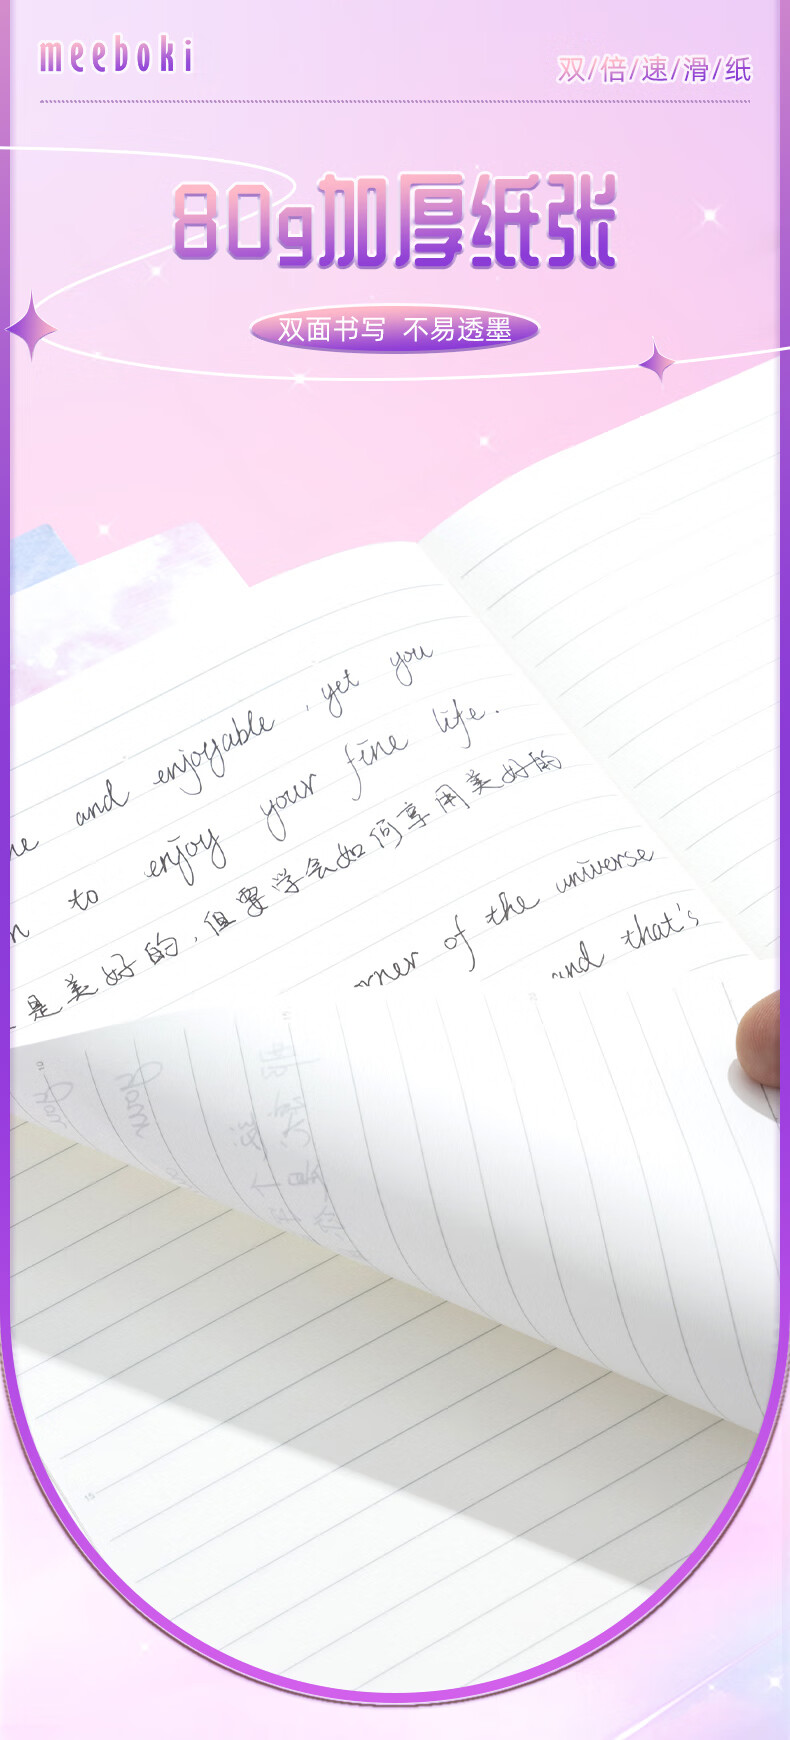 meeboki
双/倍/速/滑/纸
80g加厚纸张
双面书写 不易透墨
and enjoyable , yet you
to enjoy your fine life.
是美好的,但要学会如何享用美好的
of the universe
and that's
15